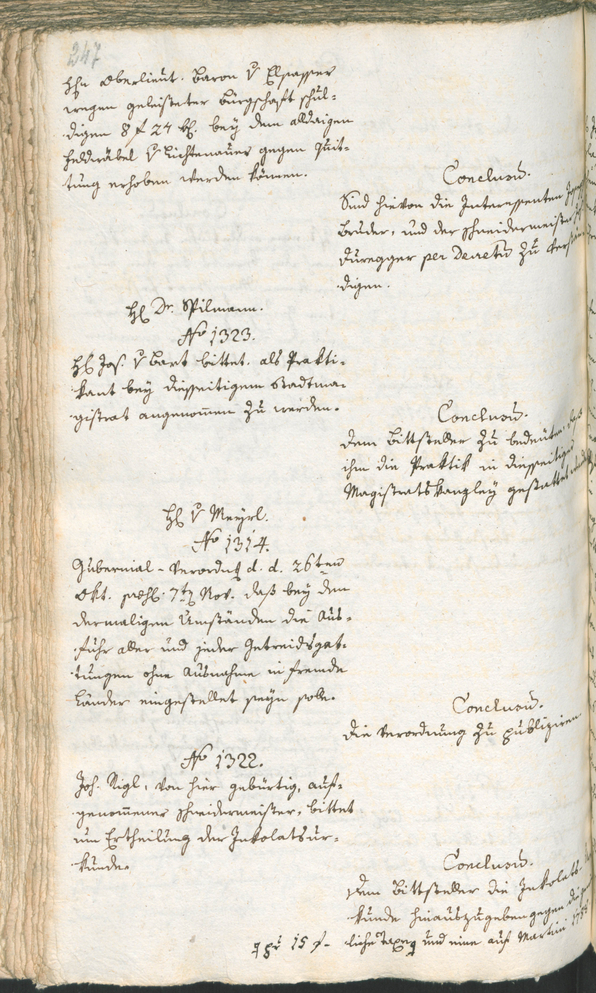 247
Hhn Oberlieut. Baron v Elsasser
wegen geleisteter Bürgschaft schul-
digen 8 f 24 kr. bey dem alldaigen
Feldwäbel v Lichtenauer gegen Quit-
tung erhoben werden können.
Conclusum.
Sind hievon die Interessenten
Brüder, und der Schneidermeister
Duregger per Decretum zu verstän-
digen.
H Dr. Spilmann.
No 1323.
H Jos. v Bart bittet, als Prakti-
kant bey diesseitigem Stadtma-
gistrat angenommen zu werden.
Conclusum.
Dem Bittsteller zu bedeuten, daß
ihm die Praktik in diesseitiger
Magistratskanzley gestattet
H v Meyrl.
No 1314.
Gubernial-Verordng d. d. 26ten
Okt. praes. 7ten Nov. daß bey den
dermaligen Umständen die Aus-
fuhr aller und jeder Getreidsgat-
tungen ohne Ausnahme in fremde
Länder eingestellet seyn solle.
Conclusum.
Die Verordnung zu publiziren
No 1322.
Joh. Nigl, von hier gebürtig, auf-
genommener Schneidermeister, bittet
um Ertheilung der Inkolatsur-
kunde.
Conclusum.
Dem Bittsteller die Inkolats-
kunde hinauszugeben gegen
liche Taxen und eine auf Martini
15 f-